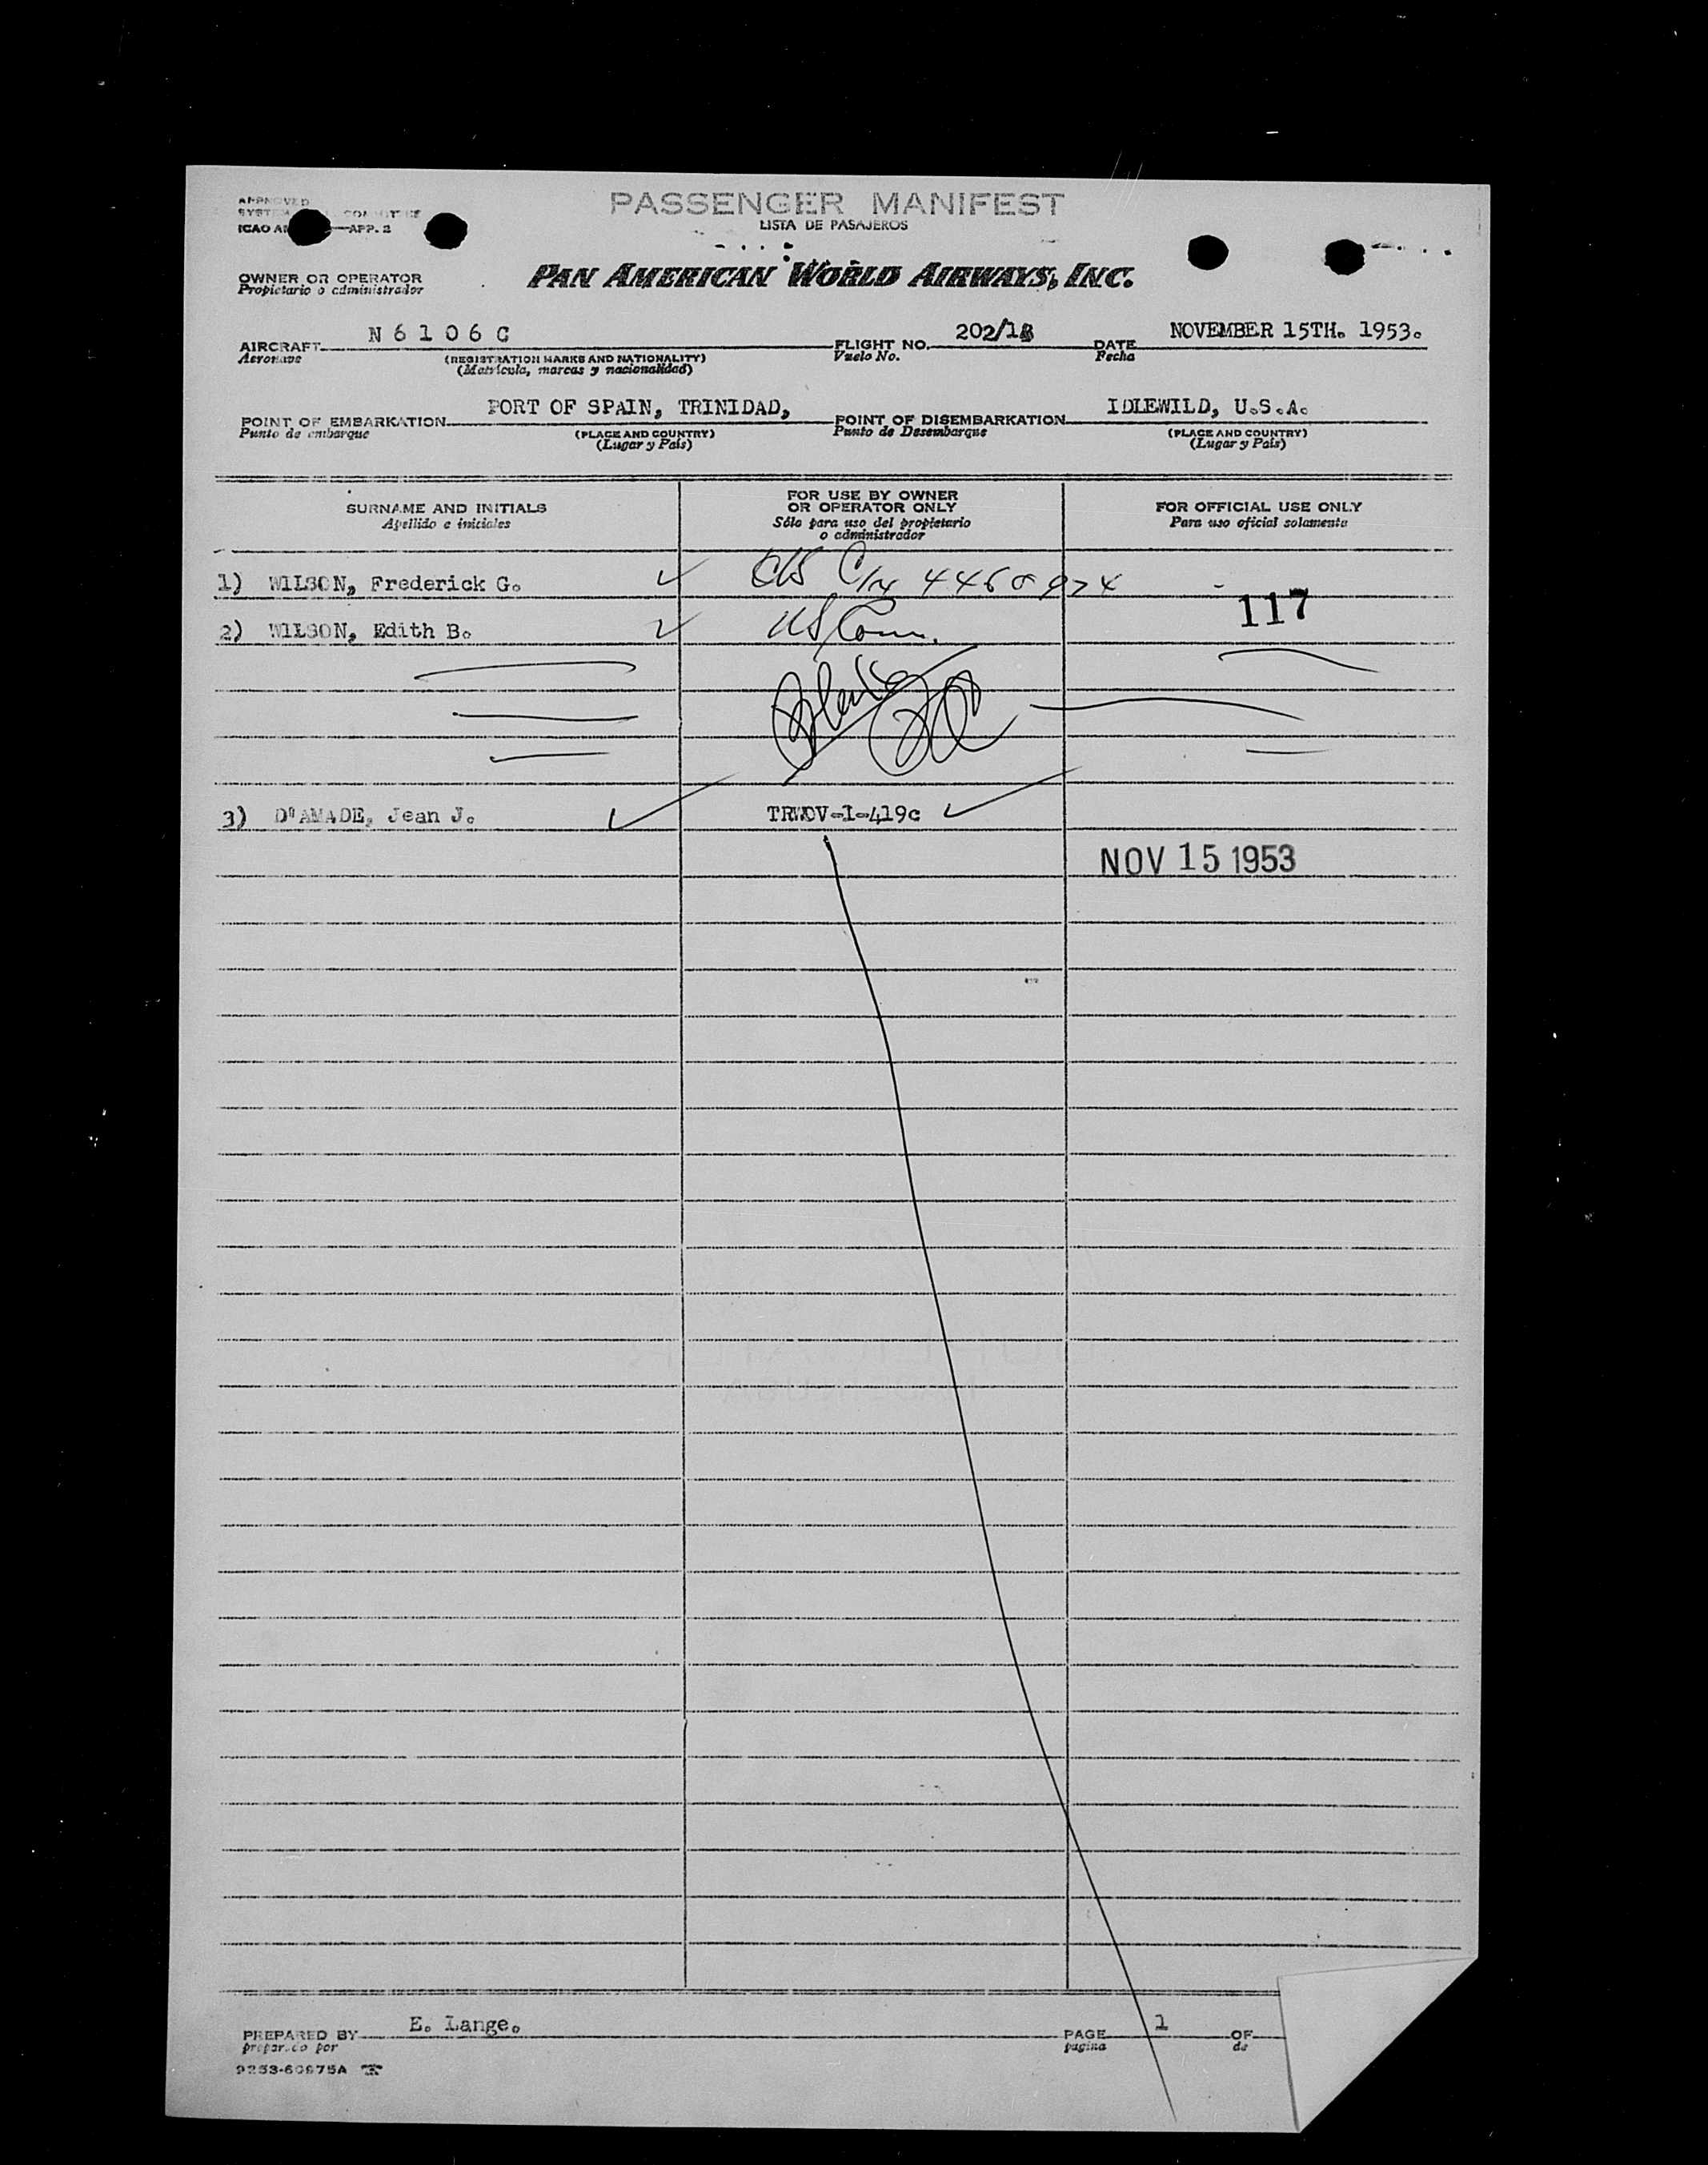 APPROVED
SYSTEM COMMITTEE
ICAO AN —APP. 2
PASSENGER MANIFEST
LISTA DE PASAJEROS
OWNER OR OPERATOR
Propietario o administrador
PAN AMERICAN WORLD AIRWAYS, INC.
AIRCRAFT N 6 1 0 6 C
Aeronave
(REGISTRATION MARKS AND NATIONALITY)
(Matrícula, marcas y nacionalidad)
FLIGHT NO. 202/
Vuelo No.
DATE NOVEMBER 15TH. 1953.
Fecha
POINT OF EMBARKATION PORT OF SPAIN, TRINIDAD,
Punto de embarque
(PLACE AND COUNTRY)
(Lugar y País)
POINT OF DISEMBARKATION IDLEWILD, U.S.A.
Punto de Desembarque
(PLACE AND COUNTRY)
(Lugar y País)
SURNAME AND INITIALS
Apellido e iniciales
FOR USE BY OWNER
OR OPERATOR ONLY
Sólo para uso del propietario
o administrador
FOR OFFICIAL USE ONLY
Para uso oficial solamente
1) WILSON, Frederick G.
117
2) WILSON, Edith B.
3) D'AMADE, Jean J. TRWOV-I-419c
NOV 15 1953
PREPARED BY E. Lange.
preparado por
PAGE 1 OF
pagina de
9253-60875A